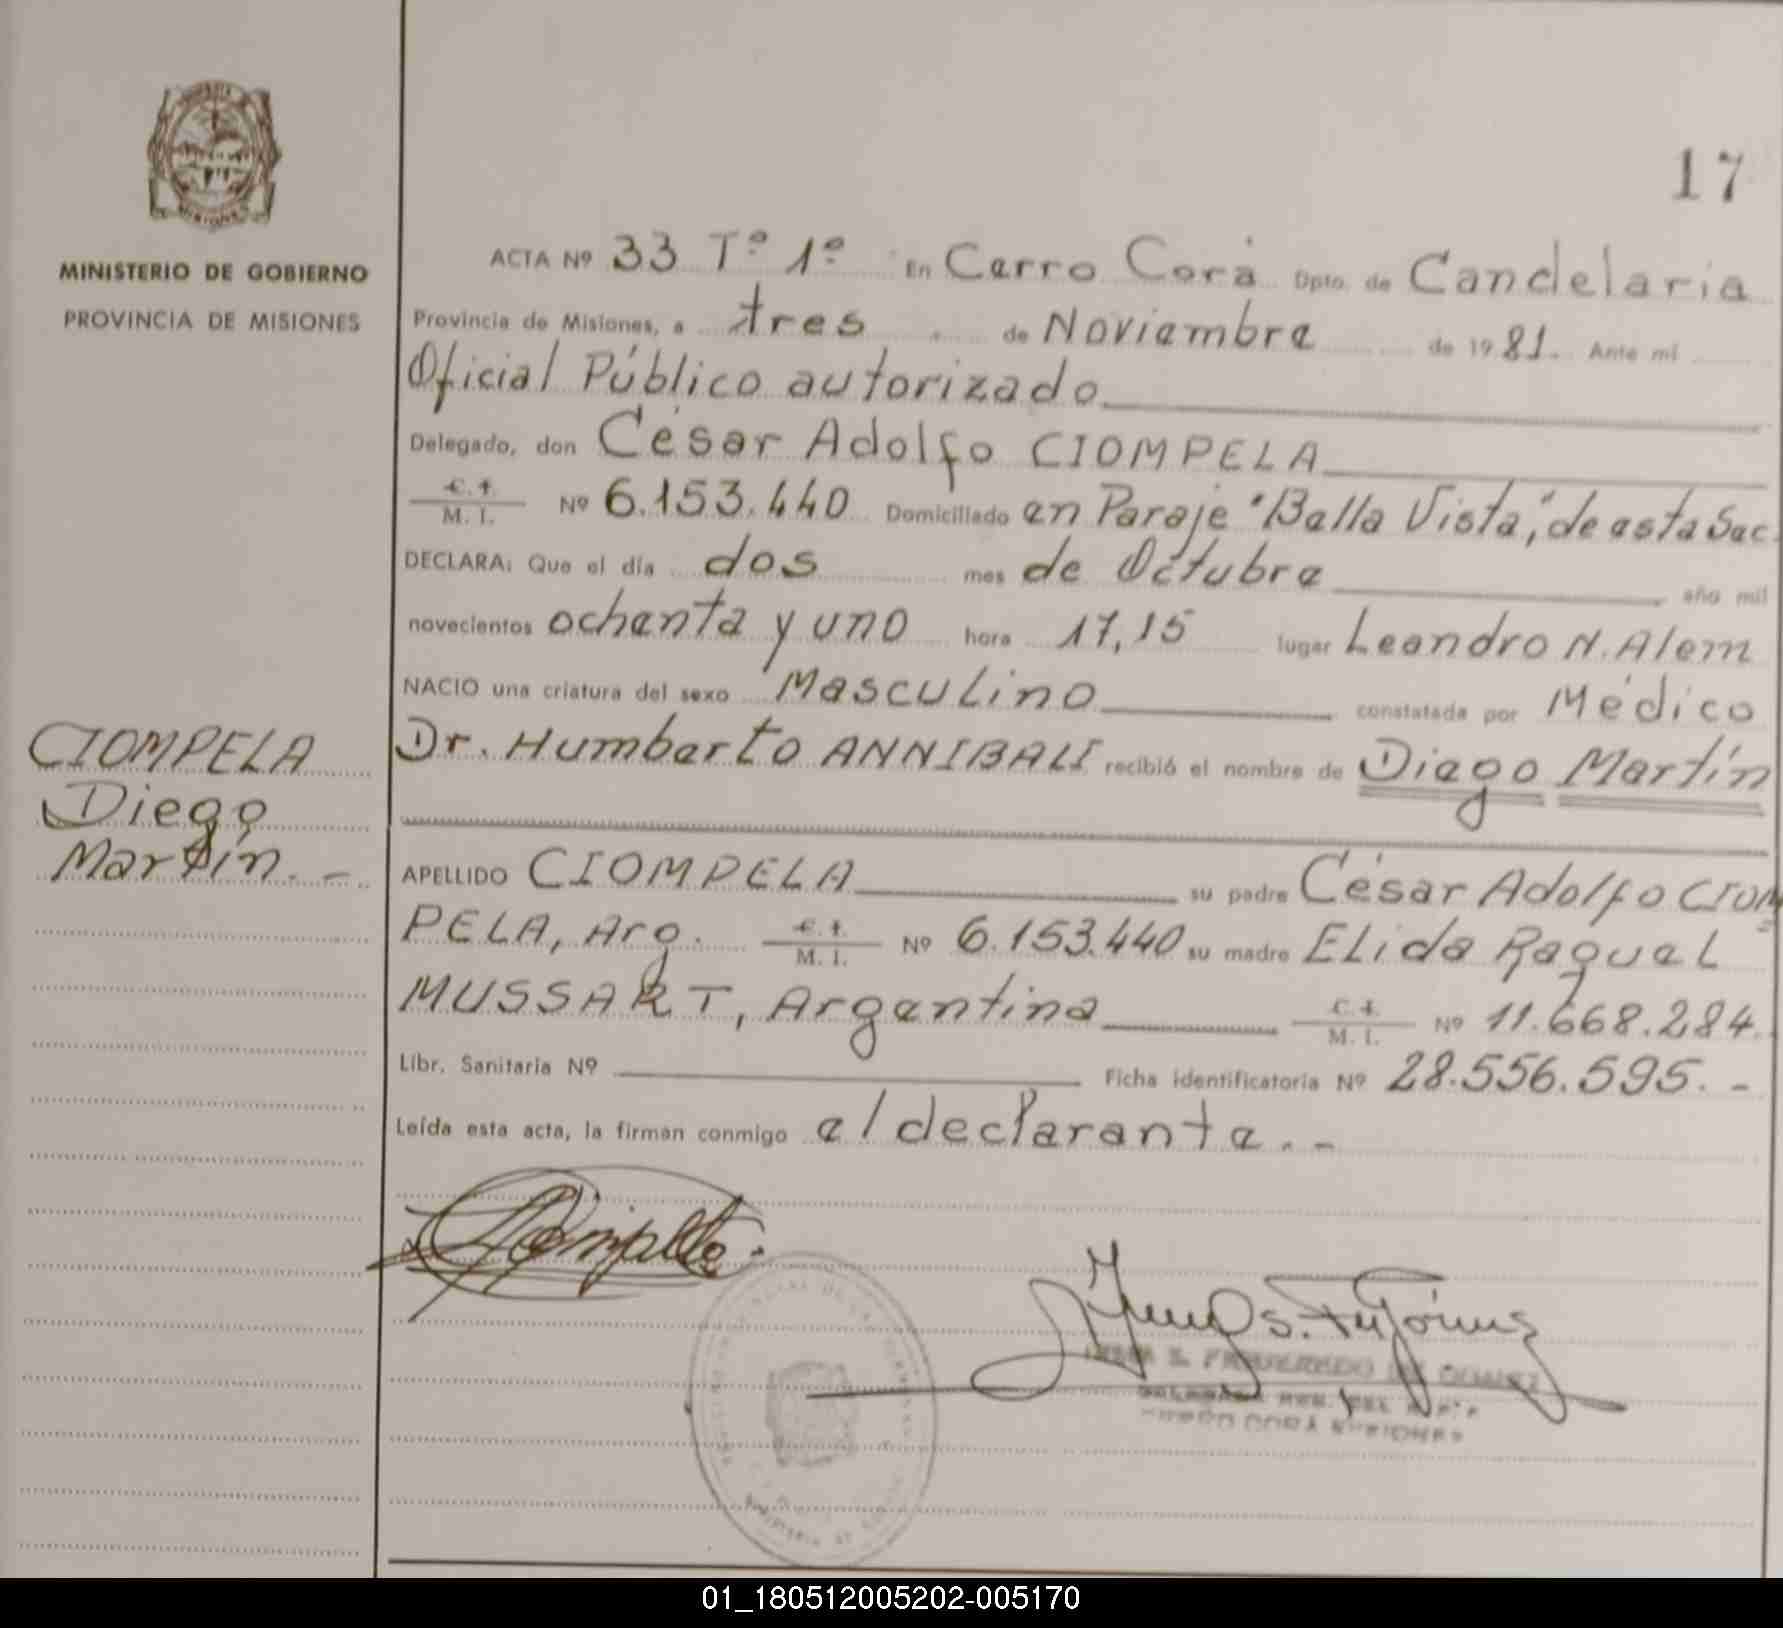 17
MINISTERIO DE GOBIERNO
PROVINCIA DE MISIONES
ACTA Nº 33 Tº 1º En Cerro Corá Dpto. de Candelaria
Provincia de Misiones, a tres de Noviembre de 1981. Ante mí
Oficial Público autorizado
Delegado, don César Adolfo CIOMPELA
C. I.
M. I. Nº 6.153.440 Domiciliado en Paraje "Bella Vista", de esta Sec.
DECLARA: Que el día dos mes de Octubre año mil
novecientos ochenta y uno hora 17,15 lugar Leandro N. Alem
NACIO una criatura del sexo Masculino constatada por Médico
Dr. Humberto ANNIBALI recibió el nombre de Diego Martín
CIOMPELA
Diego
Martín. -
APELLIDO CIOMPELA su padre César Adolfo CIOM
PELA, Arg. C. I. M. I. Nº 6.153.440 su madre ELida RaqueL
MUSSART, Argentina C. I. M. I. Nº 11.668.284.
Libr. Sanitaria Nº Ficha identificatoria Nº 28.556.595. -
Leída esta acta, la firman conmigo el declarante. -
01_180512005202-005170